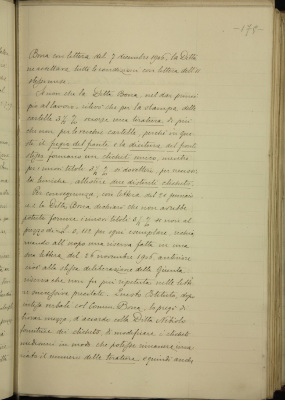 -178-
Bona con lettera del 7 dicembre 1906, la Ditta
accettava tutte le condizioni con lettera dell'11
stesso mese.
Se non che la Ditta Bona, nel dar princi-
pio al lavoro, rilevò che per la stampa delle
cartelle 3 ½ % occorre una tiratura di più
che non per le vecchie cartelle, perchè in que-
ste il fregio del fronte e la dicitura del fronte
stesso formano un clichet unico, mentre
pei nuovi titoli 3 ½ % si dovettero, per ragioni
tecniche, allestire due distinti clichets.
Per conseguenza, con lettera del 20 genna-
io la Ditta Bona dichiarò che non avrebbe
potuto fornire i nuovi titoli 3 ½ % se non al
prezzo di L. 0, per ogni esemplare, richia-
mando all'uopo una riserva fatta in una
sua lettera del 26 novembre 1906 anteriore
alla stessa deliberazione della Giunta,
riserva che non fu più ripetuta nelle lette-
re successive precitate. Questo Istituto, dopo
intesa verbale col Comm. Bona, lo pregò di
trovar mezzo, d'accordo colla Ditta
fornitrice dei clichets, di modificare i clichets
medesimi in modo che potesse rimanere inva-
riato il numero delle tirature, e quindi anche